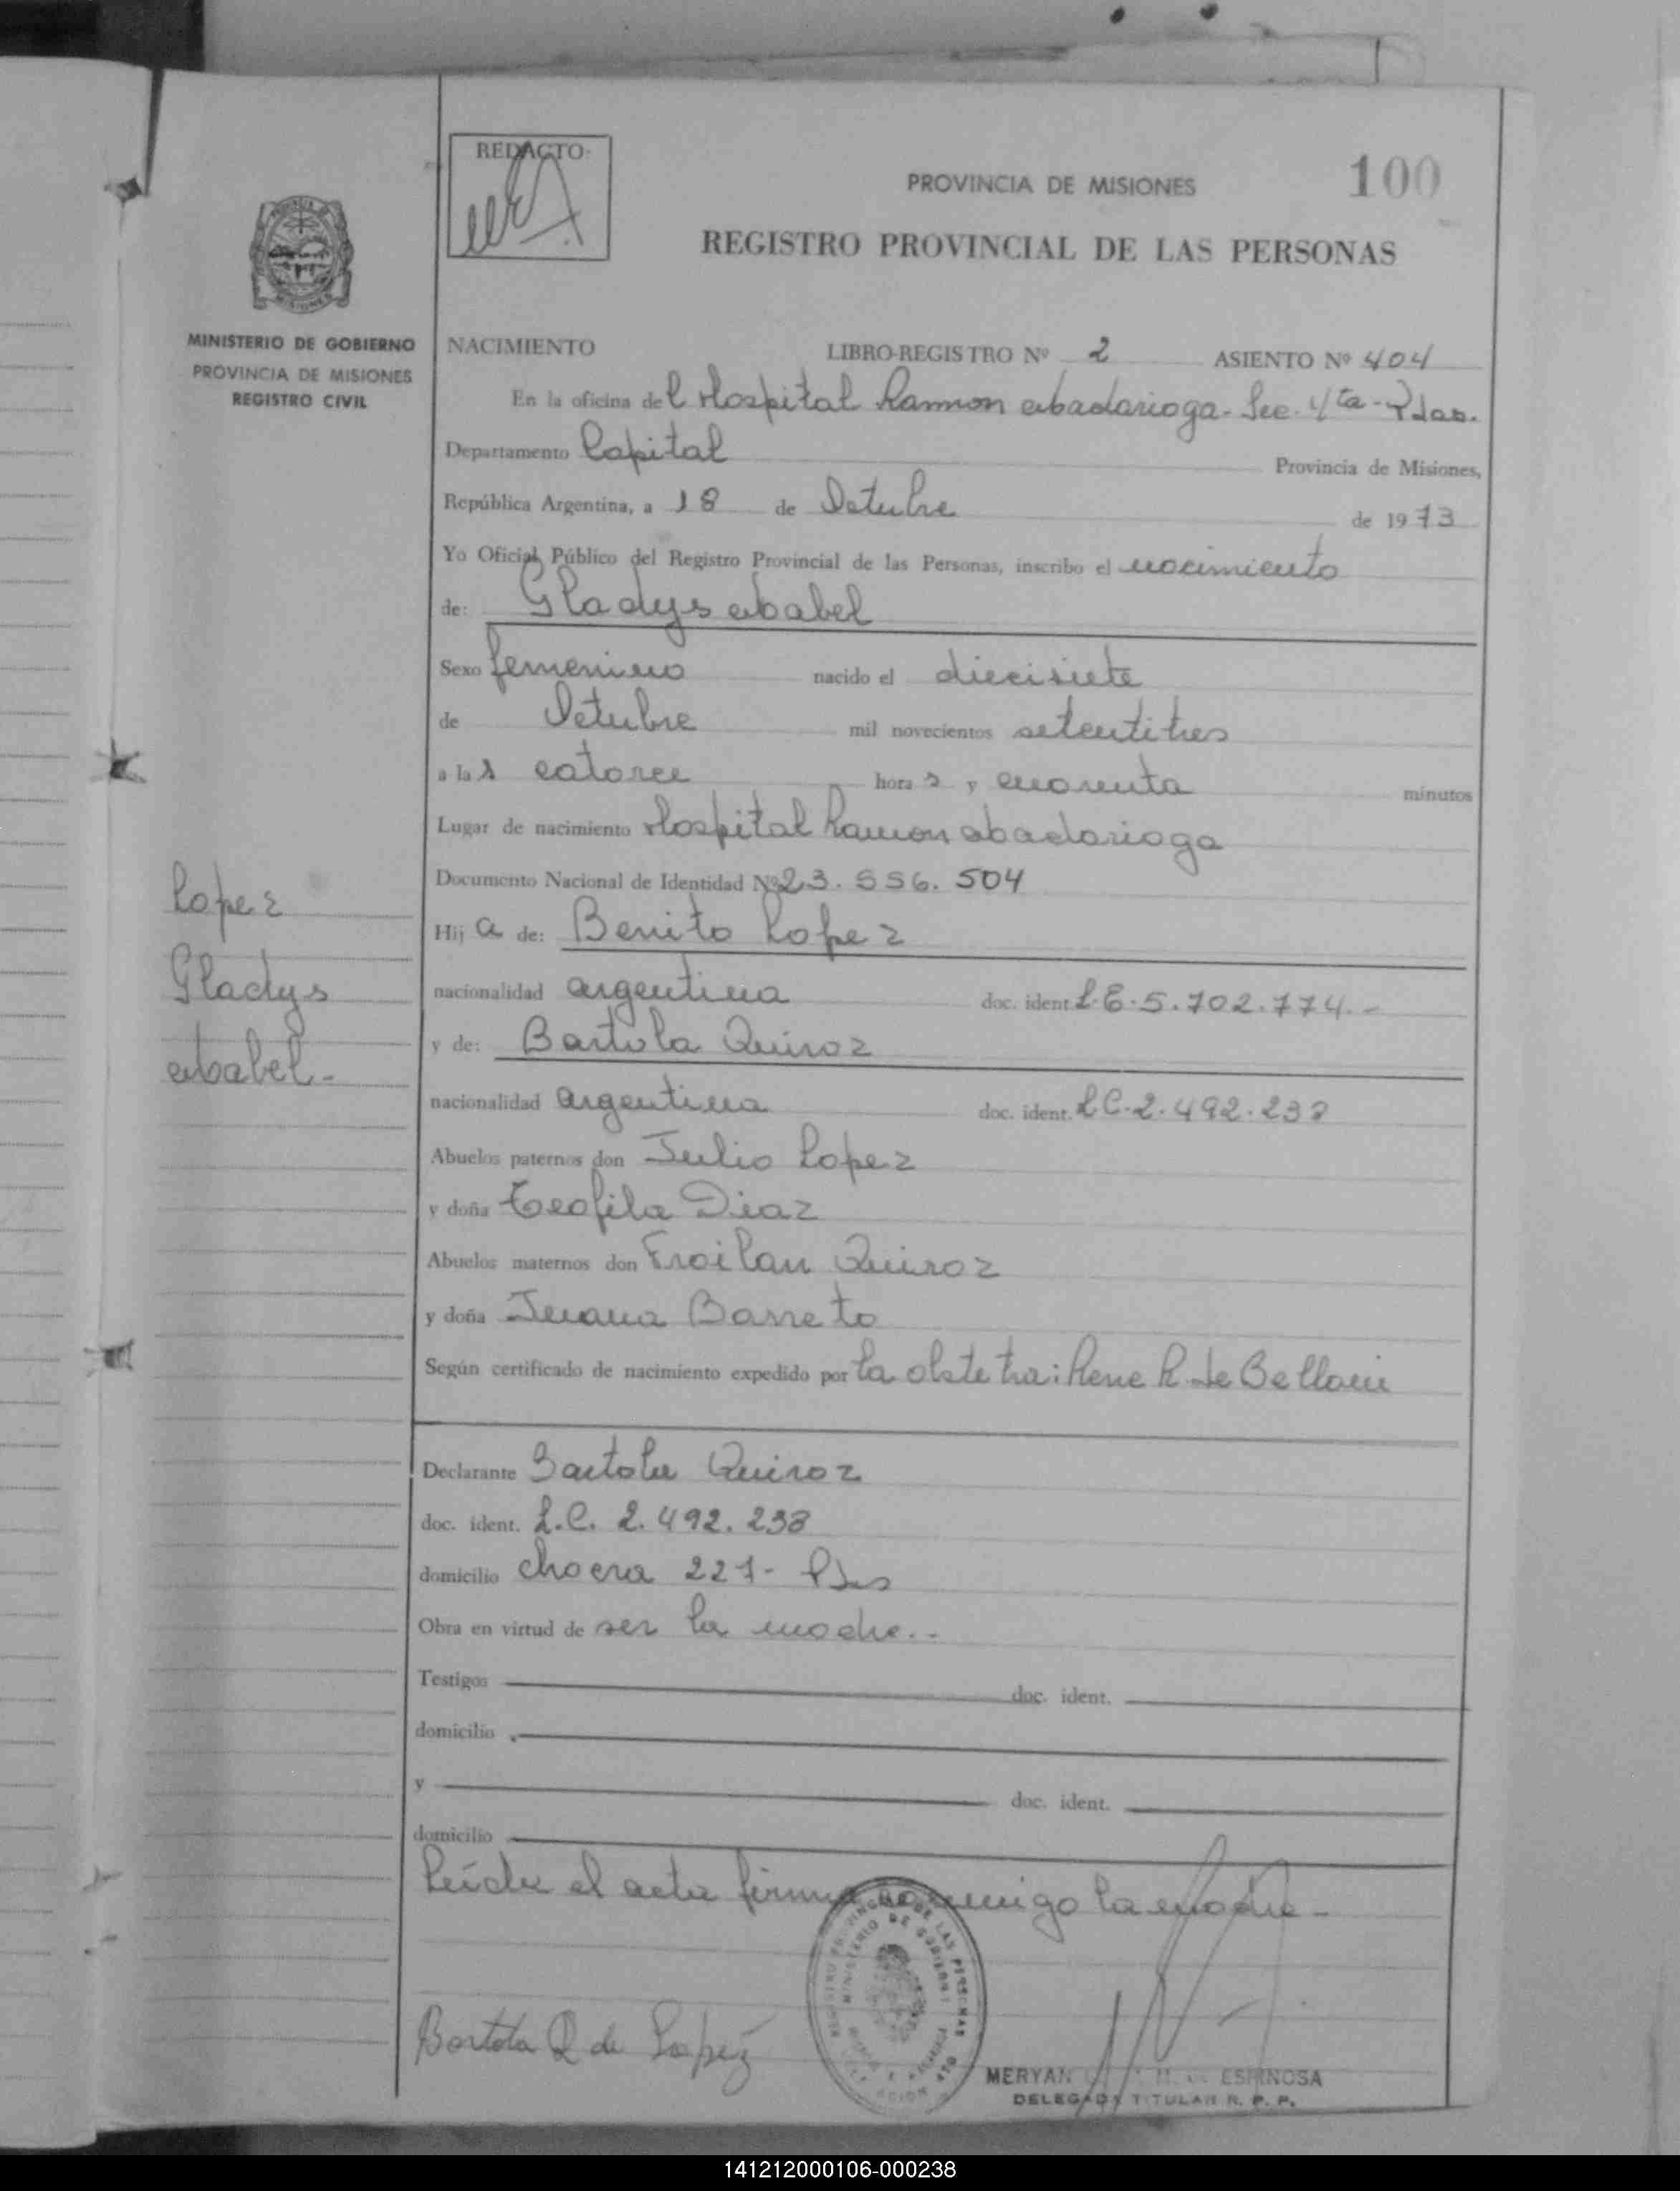 REDACTO:
100
PROVINCIA DE MISIONES
REGISTRO PROVINCIAL DE LAS PERSONAS
MINISTERIO DE GOBIERNO
PROVINCIA DE MISIONES
REGISTRO CIVIL
NACIMIENTO LIBRO-REGISTRO Nº 2 ASIENTO Nº 404
En la oficina del Hospital Ramon Abadarioga - Sec. 4ta - Pdas.
Departamento Capital Provincia de Misiones,
República Argentina, a 18 de Octubre de 1973
Yo Oficial Público del Registro Provincial de las Personas, inscribo el nacimiento
de: Gladys Ababel
Sexo femenino nacido el diecisiete
de Octubre mil novecientos setentitres
a las catorce horas y cuarenta minutos
Lugar de nacimiento Hospital Ramon Abadarioga
Documento Nacional de Identidad Nº 23.556.504
Hija de: Benito Lopez
nacionalidad argentina doc. ident. L.E. 5.702.774.-
y de: Bartola Quiroz
nacionalidad argentina doc. ident. L.C. 2.492.238
Abuelos paternos don Julio Lopez
y doña Teofila Diaz
Abuelos maternos don Froilan Quiroz
y doña Juana Barreto
Según certificado de nacimiento expedido por la obstetra: Rene R. de Belloni
Lopez
Gladys
Ababel-
Declarante Bartola Quiroz
doc. ident. L.C. 2.492.238
domicilio chacra 227- Pdas
Obra en virtud de ser la madre.-
Testigos doc. ident.
domicilio
y doc. ident.
domicilio
Leída el acta firma conmigo la madre-
REGISTRO PROVINCIAL DE LAS PERSONAS
MINISTERIO DE GOBIERNO
Bartola Q de Lopez
MERYAN ESPINOSA
DELEGADA TITULAR R. P. P.
141212000106-000238